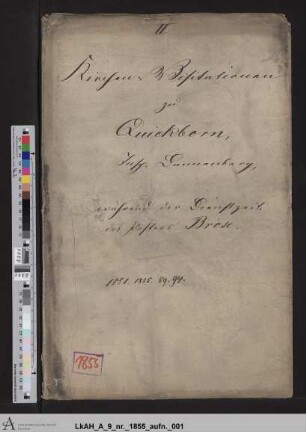 II
Kirchen-Visitationen
zu
Quickborn,
Insp. Dannenberg,
während der Dienstzeit
des Pastors Brose.
1881. 1885. 89. 94.
1855
LkAH_A_9_nr._1855_aufn._001